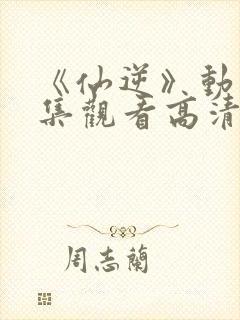 《仙逆》動
集觀看高清
周志蘭